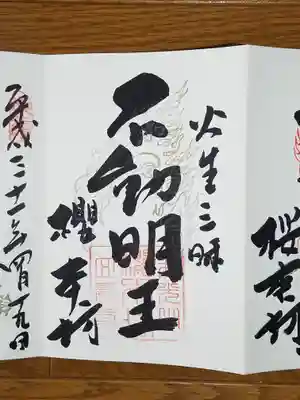 桜本坊
火生三昧
不動明王
櫻本坊
平成三十一年四月十九日